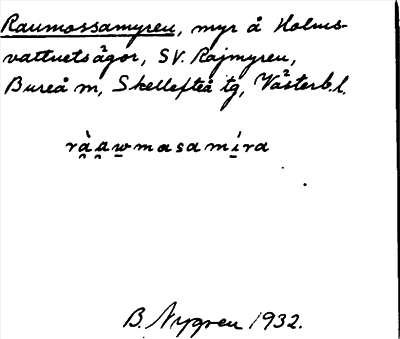 Raumossamyren, myr å Holms-
vattnets ägor, SV. Rajmyren,
Bureå m, Skellefteå tg, Västerb.l.
ràa̯w̠masami̠ra
B. Nygren 1932.